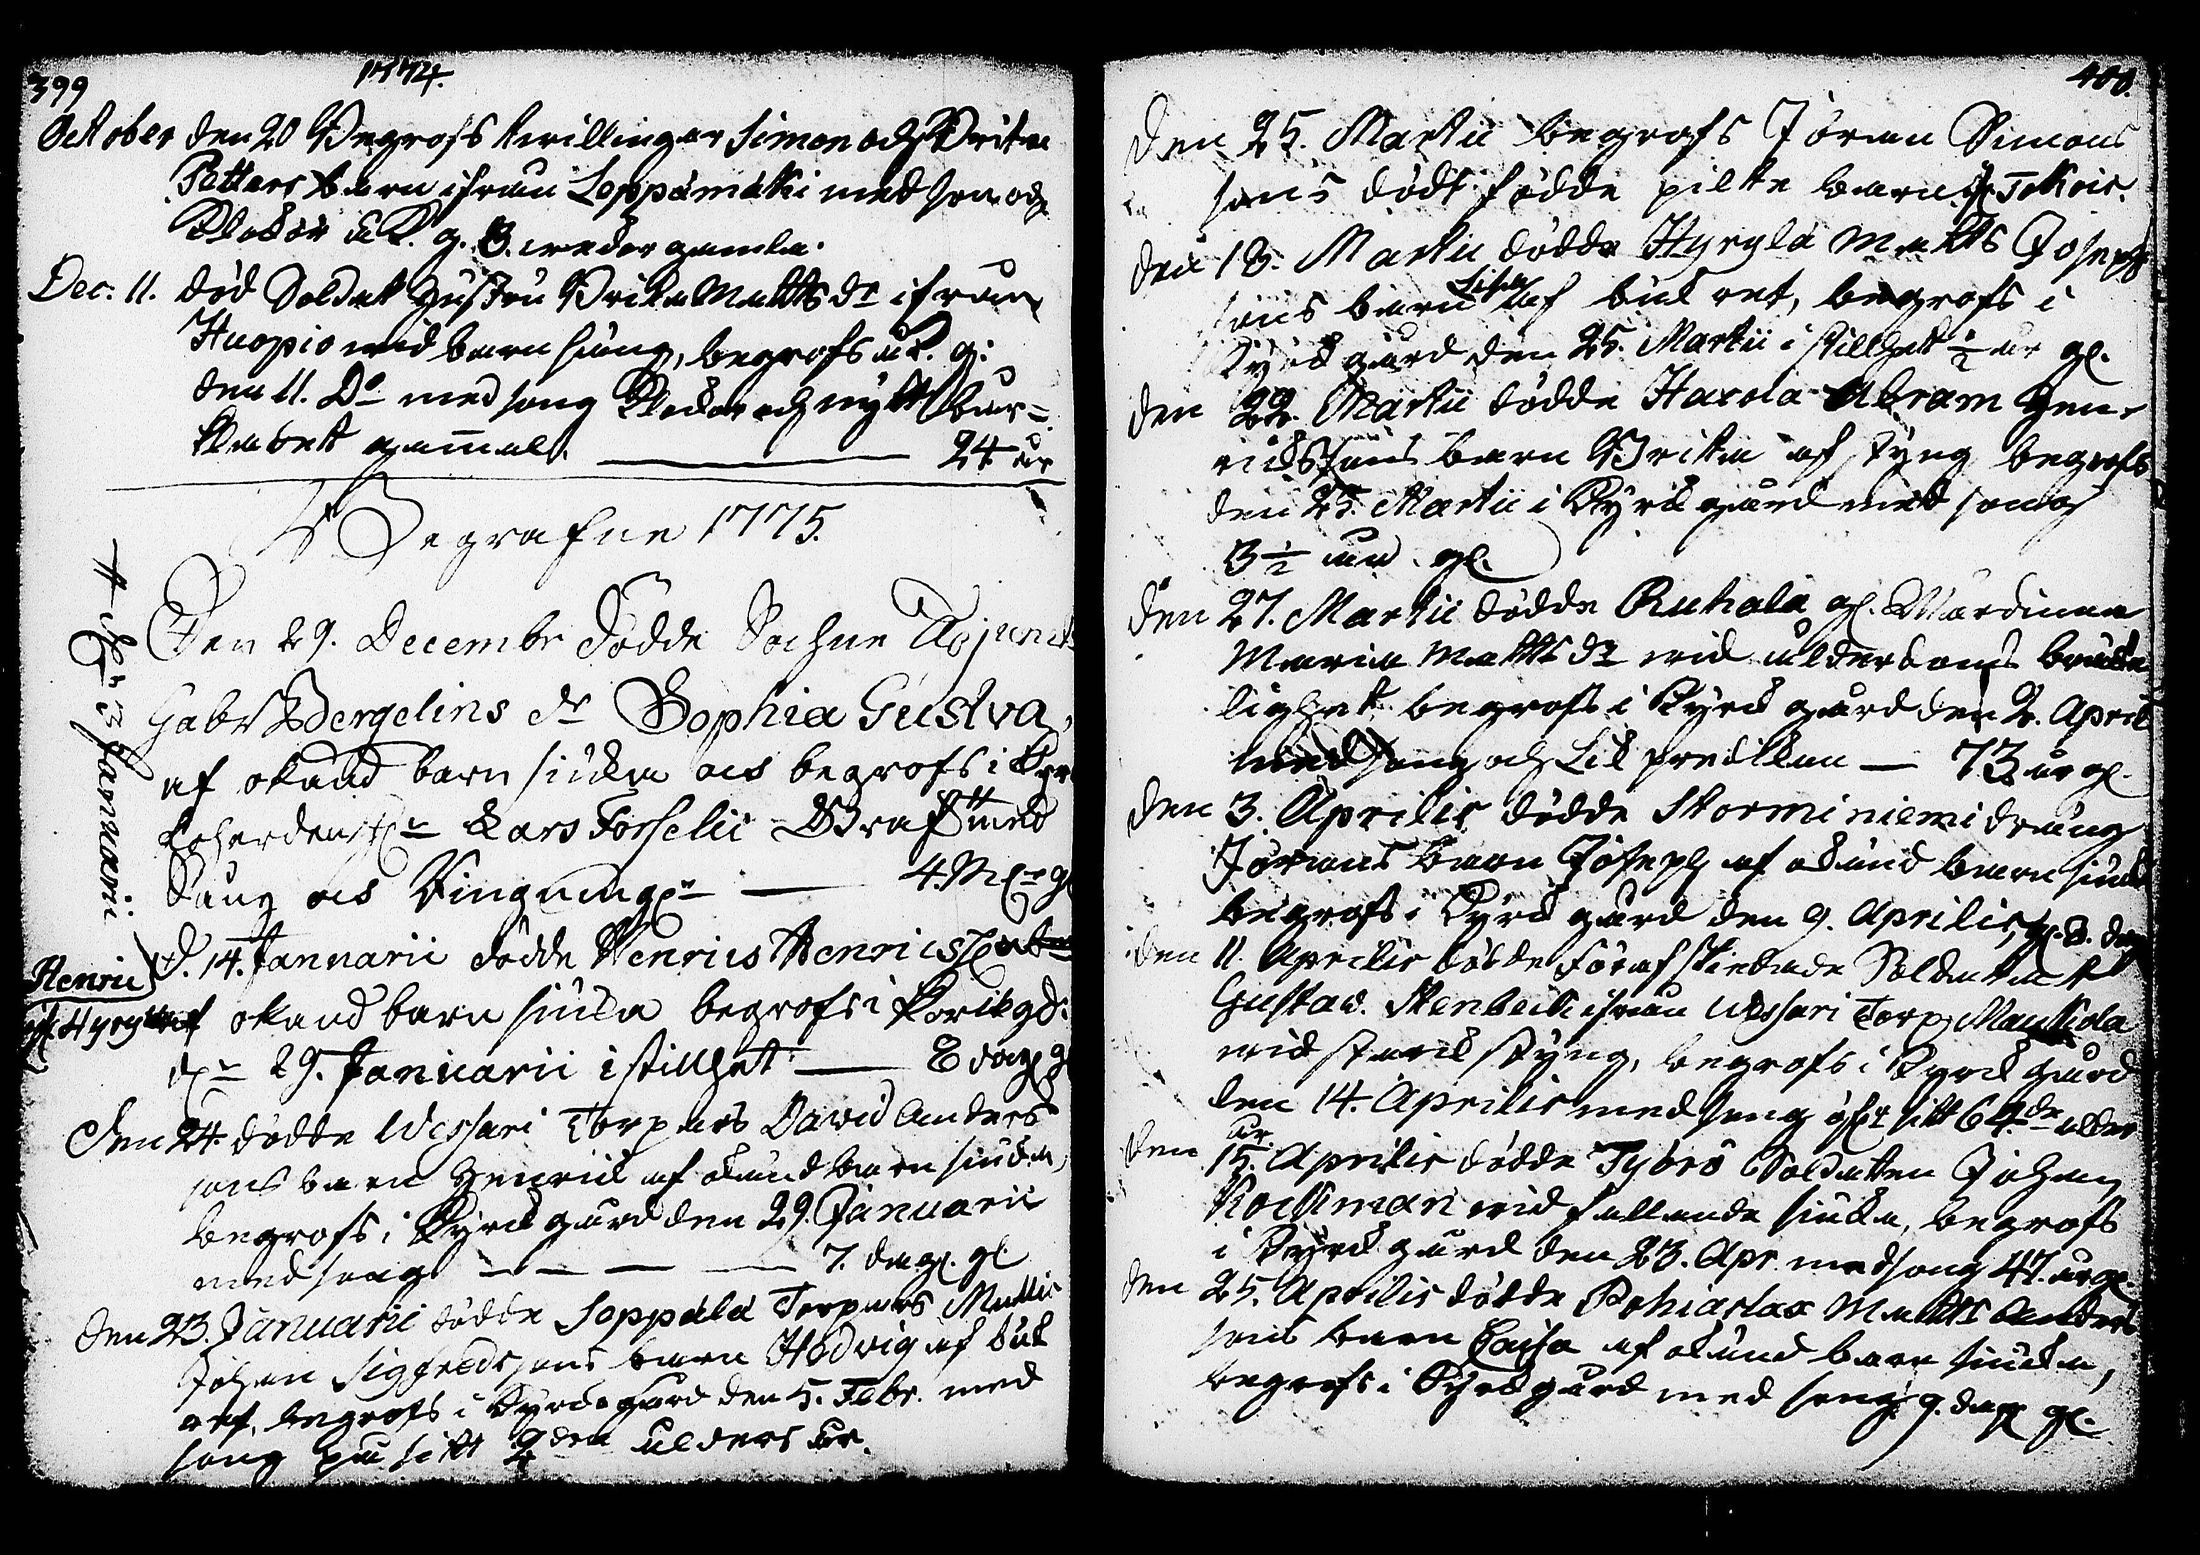 399
1774.
October den 20 Begrofs twillingar Simon och Brita
Petters barn ifrån Leppämäki med song och
Klockor å K. g. 3. wekor gamla.
Dec. 11. död Soldat hustru Brita Matts dr ifrån
Huopio wid barnsäng, begrofs å K. g:
den 11. Do med song Klockor och nytt
gammal. 24 år
Begrafne 1775.
Den 29. Decembr dödde Sochne Adjunct
Gabr Bergelins dr Sophia Gustva,
af okänd barn siukdom ock begrofs i
Lars Forselii Graf med
Sång ock Ringning 4. M gl
# d. 3 Januarii
d. 14. Januarii dödde Henrics Henricss
Henric
af okänd barn siuka begrofs i Körckgd.
d. 29. Januarii i stillhet 8 dag. gl
Den 24. dödde Wessari Torpars David Anders
sons barn Henrick af okänd barn siuka,
begrofs i Kyrckgård den 29. Januarii
med song 7. dag. gl
Den 23. Januarii dödde Soppala Torpars Matts
Johan Sigfreds sons barn Hedvig af buk
ref, begrofs i Kyrckogård den 5. Febr. med
song på sitt 2den ålders år.
400.
Den 25. Martii begrofs Jöran Simons
sons dödt födde pilte barn fr. Tokois.
den 18. Martii dödde Hyrylä Matts Josephs
sons barn Lisa af buk ref, begrofs i
Kyrckgård den 25. Martii i stillhet ½ år gl.
den 22. Martii dödde Harola Abram Hen-
ricks sons barn Brita af styng begrofs
den 25. Martii i Kyrckgård med song
3½ år. gl.
den 27. Martii dödde Ruhala gl. Wärdinna
Maria Matts dr wid ålderdoms bräck
lighet begrofs i Kyrckgård den 2. April
med song och Lik predikan — 73 år gl.
den 3. Aprilis dödde Storminiemi dräng
Jörans barn Joseph af okänd barn siuka
begrofs i Kyrckgård den 9. Aprilis, gl. 8. dag
den 11. Aprilis dödde förafskiedade Soldaten
Gustav. Stenbeck ifrån Wessari Torp Maukola
wid starck styng, begrofs i Kyrckgård
den 14. Aprilis med song öfr sitt 64de ålders
år.
den 15. Aprilis dödde Tybrö Soldaten Johan
Kockman wid fallande siuka, begrofs
i Kyrckgård den 23. Apr. med song 47. år gl.
den 25. Aprilis dödde Pohiastar Matts Anders
sons barn Caisa af okänd barn siuka,
begrofs i Kyrckgård med song 9. dag. gl.